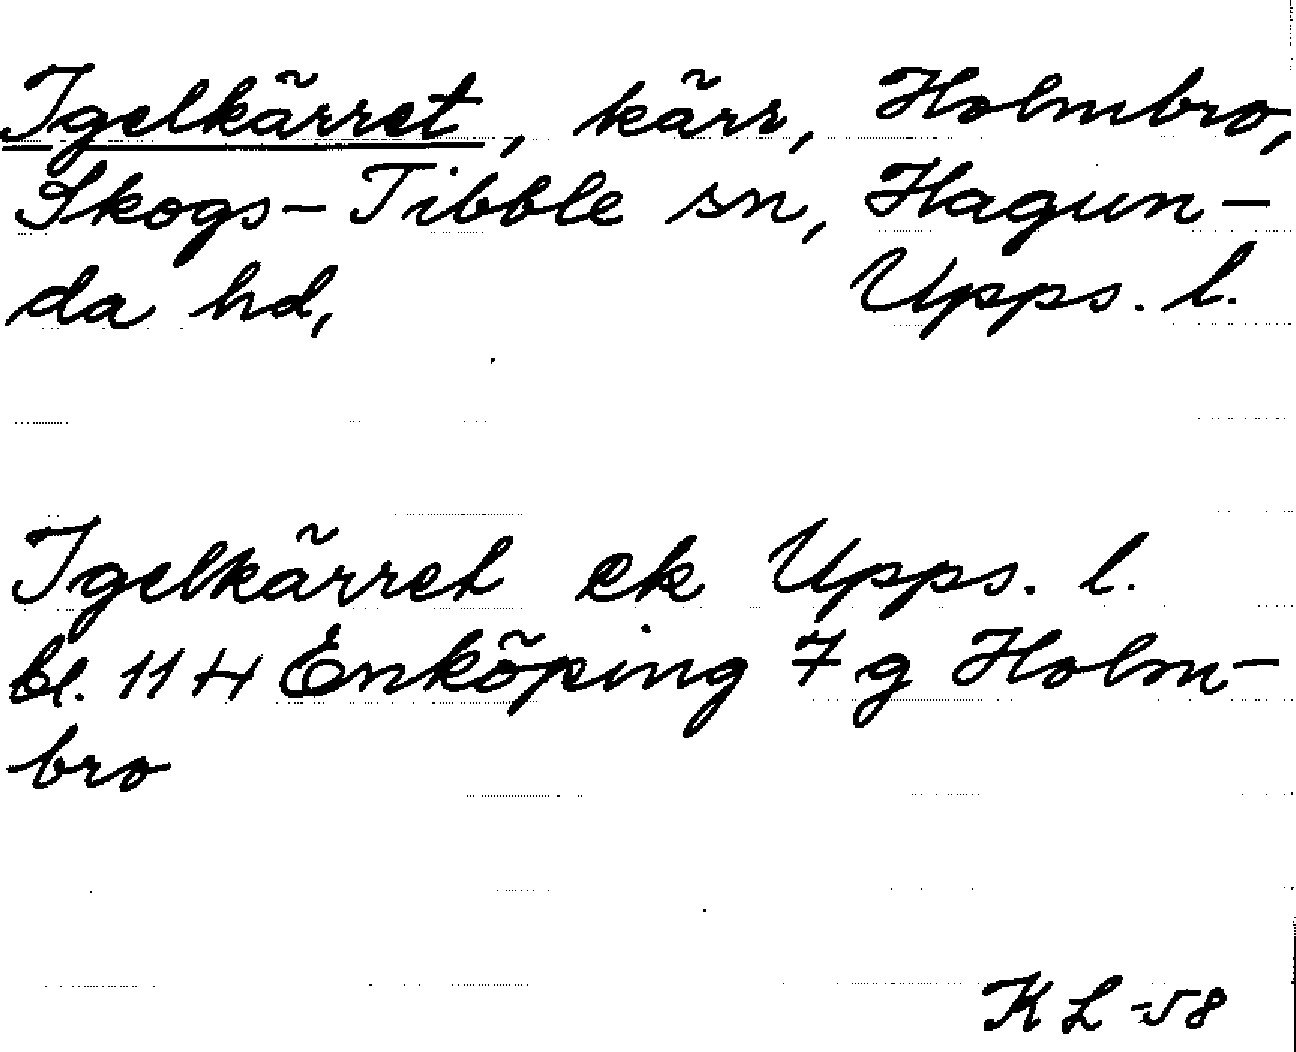 Igelkärret, kärr, Holmbro,
Skogs-Tibble sn, Hagun-
da hd, Upps. l.
Igelkärret ek Upps. l.
bl. 114 Enköping 7 g Holm-
bro
KL -58